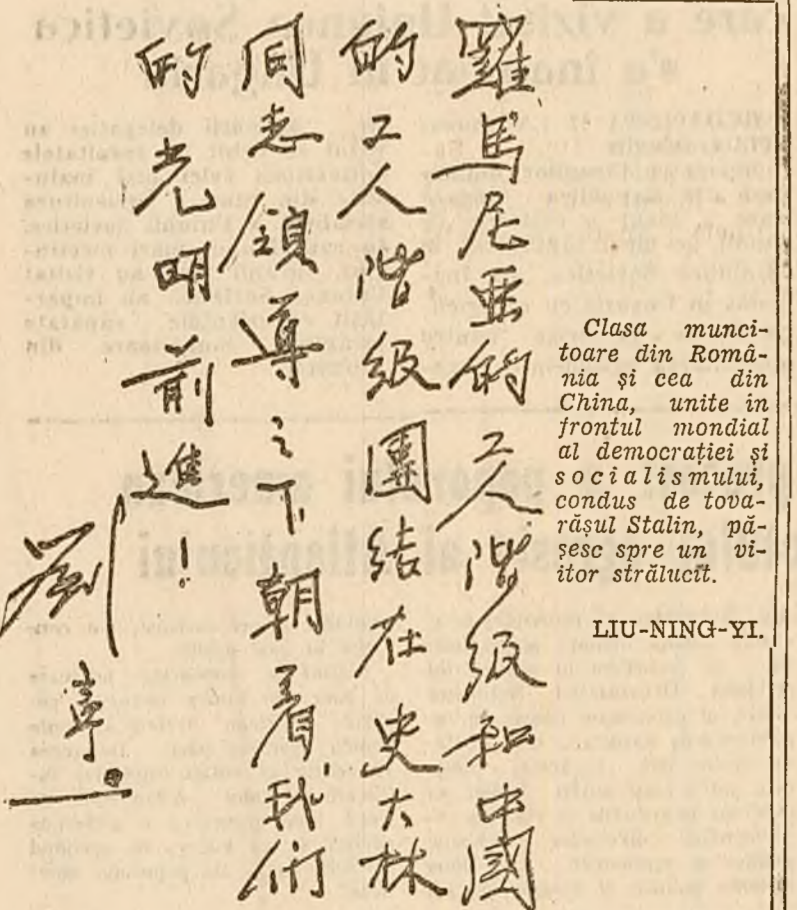 羅馬尼亞的工人階級和中國
的工人階級團結在史大林
同志領導之下朝着我們
的光明前進!
劉寧一
Clasa munci-
toare din Româ-
nia și cea din
China, unite in
frontul mondial
al democrației și
socialismului,
condus de tova-
rășul Stalin, pă-
șesc spre un vi-
itor strălucit.
LIU-NING-YI.